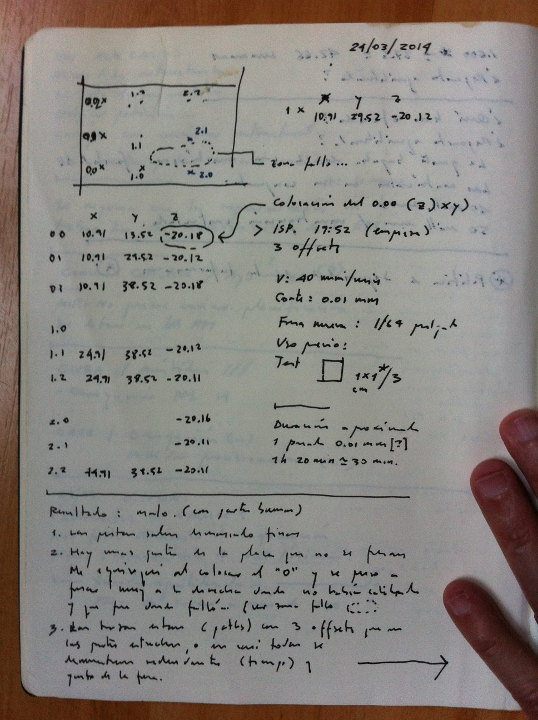 24/03/2014
0.0 x 1.2 2.2
x y z
1 x 10.91 29.52 -20.12
2.1
1.1
0.0 x 1.0 x 2.0
zona fallo...
Colocación del 0.00 (z) xy)
x y z
0 0 10.91 13.52 -20.18
> ISP. 17:52 (empieza)
0 1 10.91 29.52 -20.12
3 offsets
0 2 10.91 38.52 -20.18
V: 40 mm/min
Corte: 0.01 mm
1.0
Fresa nueva: 1/64 pulgada
1.1 24.91 38.52 -20.12
Uso previo:
1.2 24.91 38.52 -20.11
Test 1x1*/3
cm
2.0 -20.16
Duración aproximada
2.1 -20.11
1 pasada 0.01 mm [?]
2.2 44.91 38.52 -20.11
1h 20 min ≃ 30 min.
Resultado: malo. (con partes buenas)
1. Las pistas salen demasiado finas
2. Hay unas partes de la placa que no se fresan
Me equivoqué al colocar el "0" y se puso a
fresar muy a la derecha donde no había calibrado
y que fue donde falló (ver zona fallo
3. Las con 3 offsets
las partes o en casi todas se
demuestran redundantes (tiempo) y
gasto de la fresa.